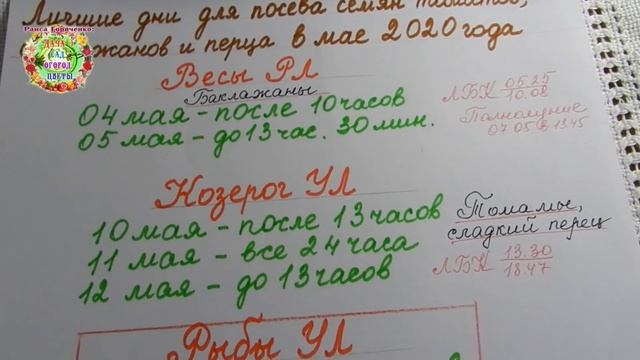 Раиса Горяченко:
ДАЧА
САД
ОГОРОД
ЦВЕТЫ
Лучшие дни для посева семян томатов,
жанов и перца в мае 2020 года
Весы РЛ
Баклажаны
04 мая - после 10 часов
05 мая - до 13 час. 30 мин.
ЛБК 05.25
10.08
Полнолуние
07.05 в 13.45
Козерог УЛ
10 мая - после 13 часов
11 мая - все 24 часа
12 мая - до 13 часов
Томаты,
сладкий перец
ЛБК 13.30
18.47
Рыбы УЛ